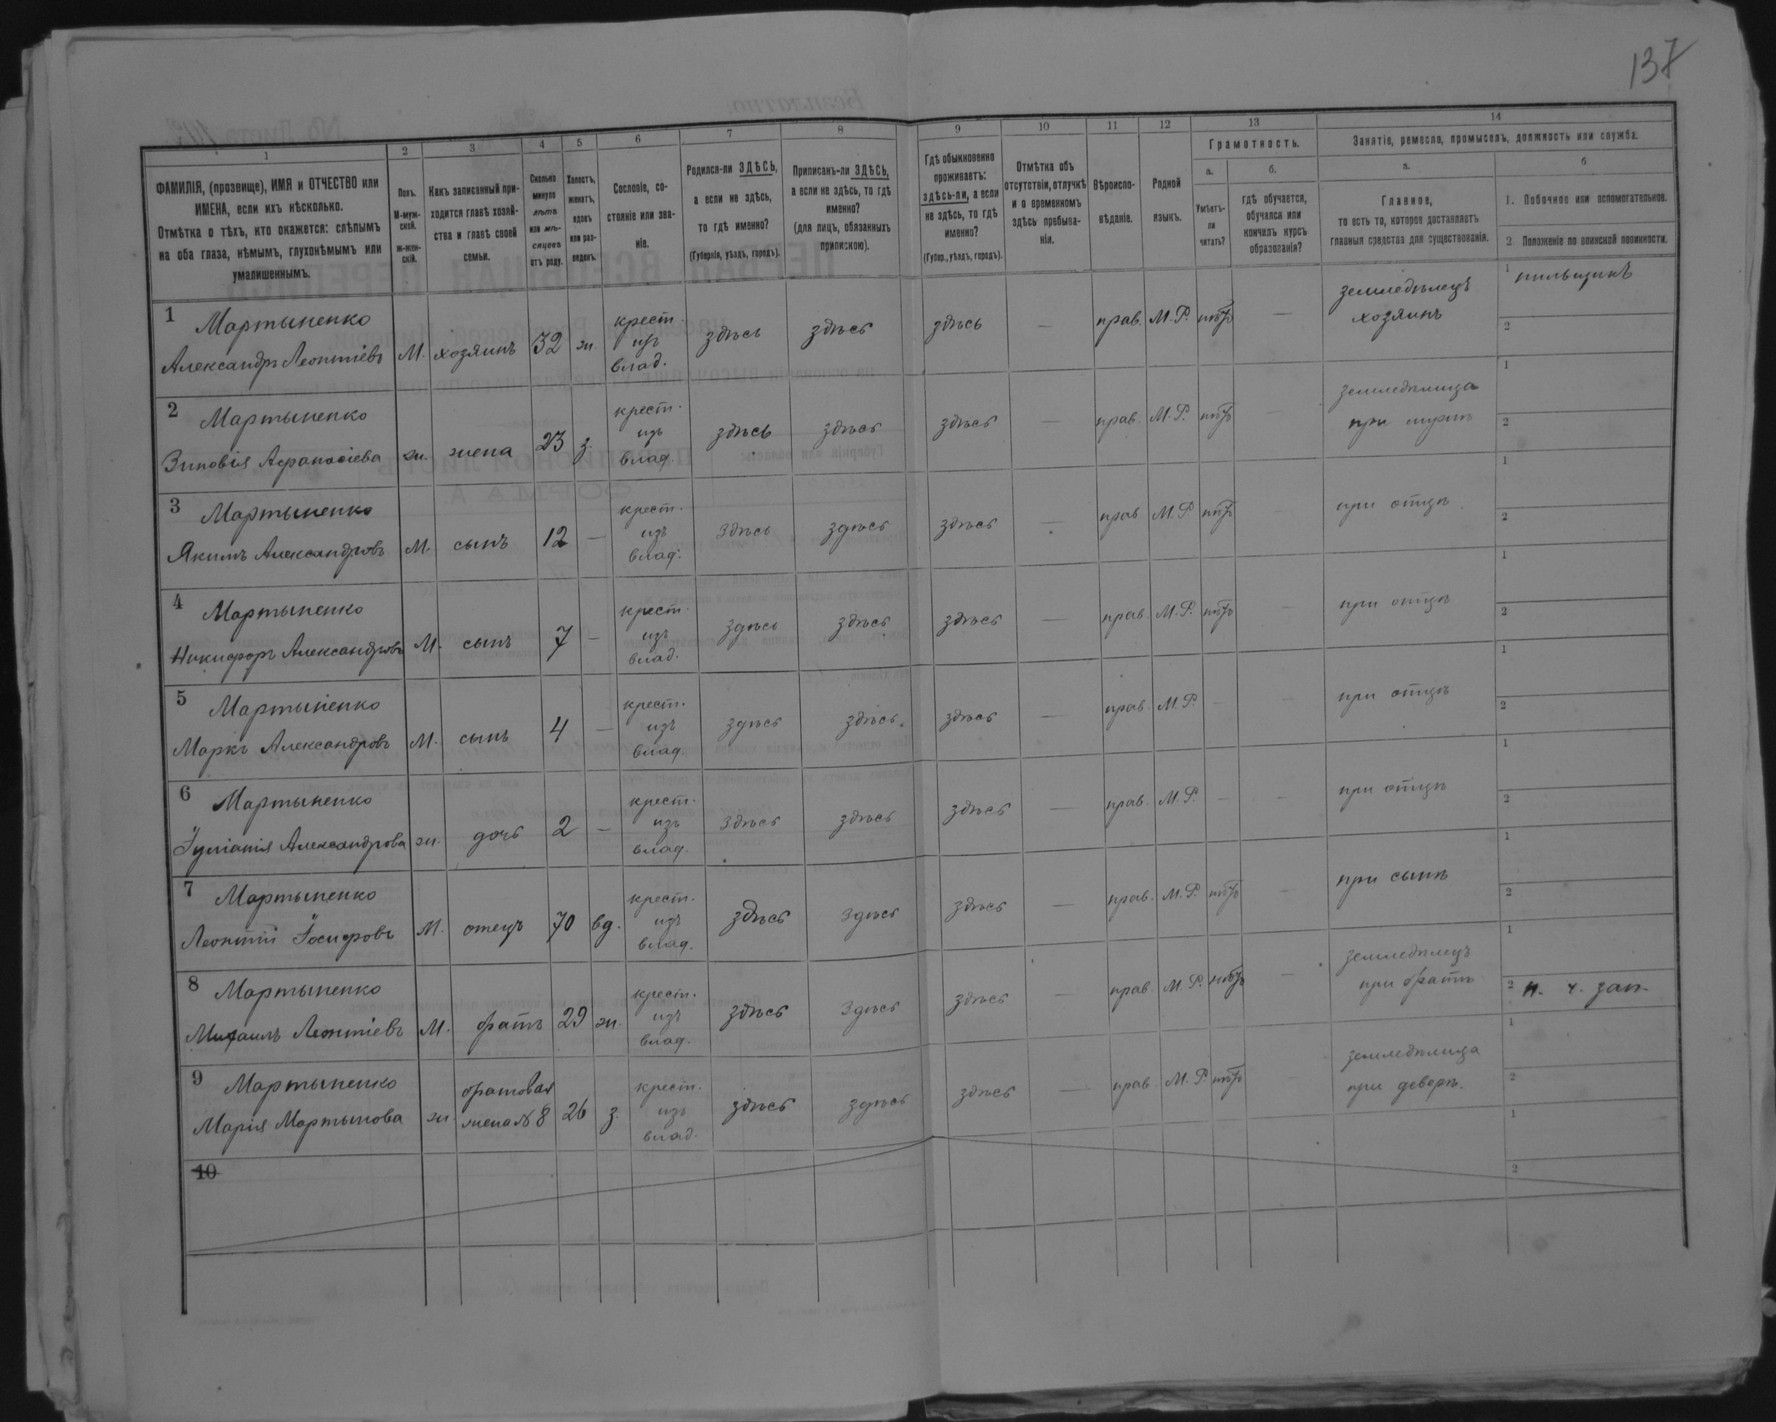 137
1
2
3
4
5
6
7
8
9
10
11
12
13
14
ФАМИЛІЯ, (прозвище), ИМЯ и ОТЧЕСТВО или
ИМЕНА, если ихъ нѣсколько.
Отмѣтка о тѣхъ, кто окажется: слѣпымъ
на оба глаза, нѣмымъ, глухонѣмымъ или
умалишеннымъ.
Полъ.
М-муж-
ской.
ж-жен-
скій.
Какъ записанный при-
ходится главѣ хозяй-
ства и главѣ своей
семьи.
Сколько
минуло
лѣтъ
или мѣ-
сяцевъ
отъ роду.
Холостъ,
женатъ,
вдовъ
или раз-
веденъ.
Сословіе, со-
стояніе или зва-
ніе.
Родился-ли ЗДѢСЬ,
а если не здѣсь,
то гдѣ именно?
(Губернія, уѣздъ, городъ).
Приписанъ-ли ЗДѢСЬ,
а если не здѣсь, то гдѣ
именно?
(для лицъ, обязанныхъ
припискою).
Гдѣ обыкновенно
проживаетъ:
здѣсь-ли, а если
не здѣсь, то гдѣ
именно?
(Губер., уѣздъ, городъ).
Отмѣтка объ
отсутствіи, отлучкѣ
и о временномъ
здѣсь пребыва-
ніи.
Вѣроиспо-
вѣданіе.
Родной
языкъ.
Грамотность.
а.
Умѣетъ-
ли
читать?
б.
гдѣ обучается,
обучался или
кончилъ курсъ
образованія?
Занятіе, ремесло, промыселъ, должность или служба.
а.
Главное,
то есть то, которое доставляетъ
главныя средства для существованія.
б
1. Побочное или вспомогательное.
2 Положеніе по воинской повинности.
1 Мартыненко
Александръ Леонтіевъ М. хозяинъ 32 ж. крест изъ влад. здѣсь здѣсь здѣсь — прав. М.Р. нѣтъ — земледѣлецъ хозяинъ 1 пильщикъ 2
2 Мартыненко
Зиновія Афанасіева ж. жена 23 з. крест. изъ влад. здѣсь здѣсь здѣсь — прав. М.Р. нѣтъ — земледѣлица при мужѣ 1 2
3 Мартыненко
Якимъ Александровъ М. сынъ 12 — крест. изъ влад. здѣсь здѣсь здѣсь — прав. М.Р. нѣтъ при отцѣ 1 2
4 Мартыненко
Никифоръ Александровъ М. сынъ 7 — крест. изъ влад. здѣсь здѣсь здѣсь — прав. М.Р. нѣтъ — при отцѣ 1 2
5 Мартыненко
Маркъ Александровъ М. сынъ 4 — крест. изъ влад. здѣсь здѣсь. здѣсь — прав. М.Р. — — при отцѣ 1 2
6 Мартыненко
Іуліанія Александрова ж. дочь 2 — крест. изъ влад. здѣсь здѣсь здѣсь — прав. М.Р. — — при отцѣ 1 2
7 Мартыненко
Леонтій Іосифовъ М. отецъ 70 вд. крест. изъ влад. здѣсь здѣсь здѣсь — прав. М.Р. нѣтъ — при сынѣ 1 2
8 Мартыненко
Михаилъ Леонтіевъ М. братъ 29 ж. крест. изъ влад. здѣсь здѣсь здѣсь — прав. М.Р. нѣтъ — земледѣлецъ при братѣ 1 2 н. ч. зап.
9 Мартыненко
Марія Мартынова ж. братовая жена №8 26 з. крест. изъ влад. здѣсь здѣсь здѣсь — прав. М.Р. нѣтъ — земледѣлица при деверѣ. 1 2
10 1 2